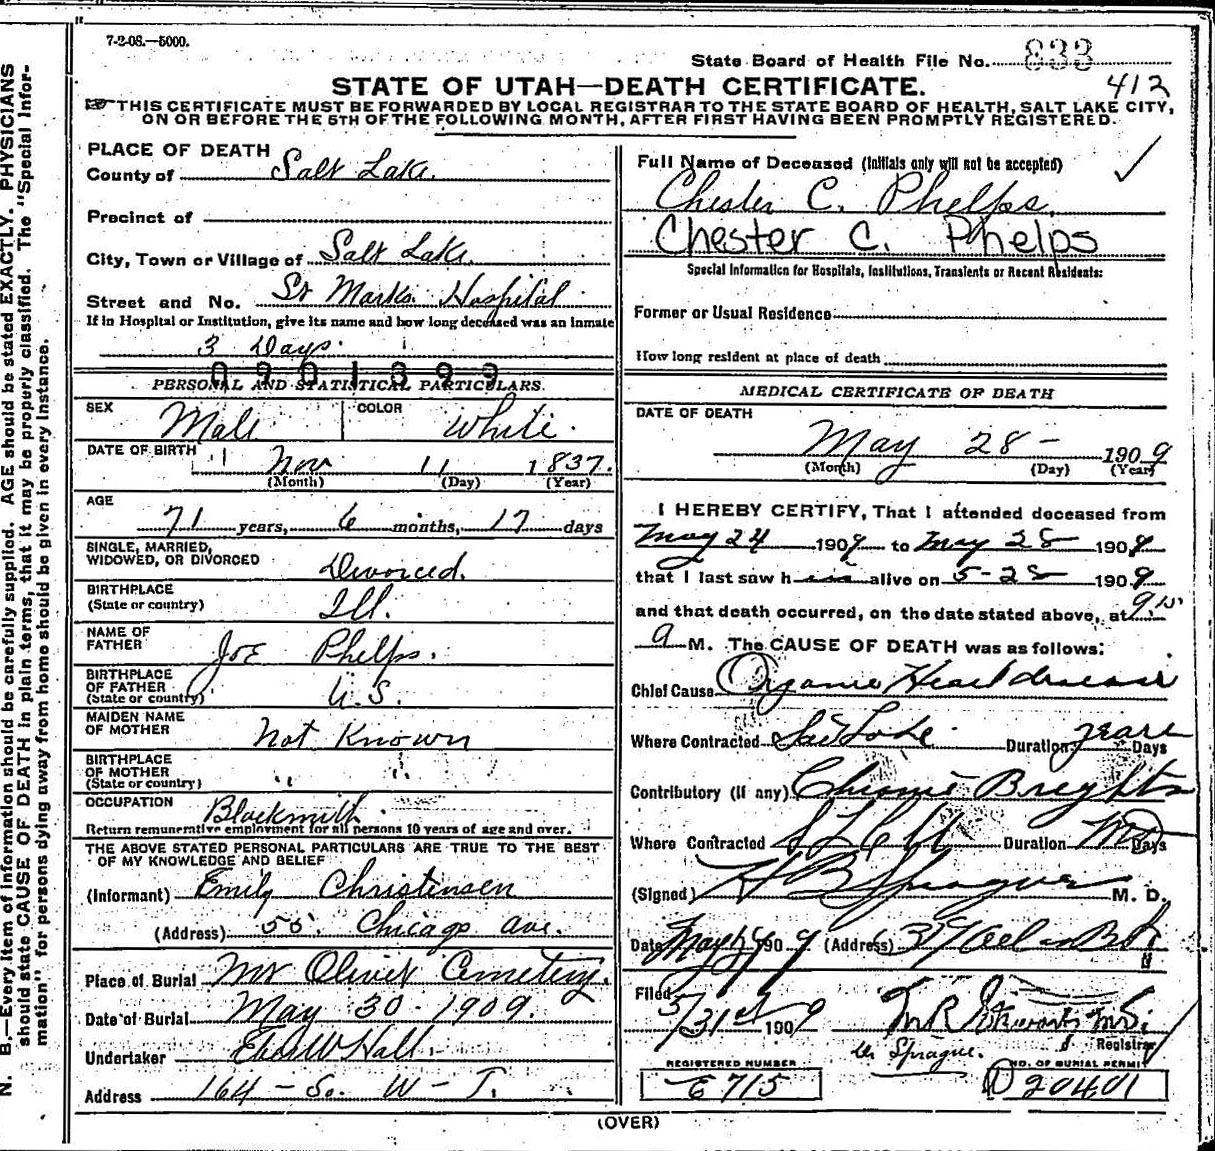 7-2-08.—5000.
State Board of Health File No. 833
412
STATE OF UTAH—DEATH CERTIFICATE.
THIS CERTIFICATE MUST BE FORWARDED BY LOCAL REGISTRAR TO THE STATE BOARD OF HEALTH, SALT LAKE CITY,
ON OR BEFORE THE 5TH OF THE FOLLOWING MONTH, AFTER FIRST HAVING BEEN PROMPTLY REGISTERED.
N. B.—Every item of information should be carefully supplied. AGE should be stated EXACTLY. PHYSICIANS
should state CAUSE OF DEATH in plain terms, that it may be properly classified. The "Special Infor-
mation" for persons dying away from home should be given in every instance.
PLACE OF DEATH
County of Salt Lake.
Precinct of
City, Town or Village of Salt Lake
Street and No. St Marks Hospital
If in Hospital or Institution, give its name and how long deceased was an inmate
3 Days.
0901399
PERSONAL AND STATISTICAL PARTICULARS.
SEX Male
COLOR White.
DATE OF BIRTH Nov 11 1837.
(Month) (Day) (Year)
AGE
71 years, 6 months, 17 days
SINGLE, MARRIED,
WIDOWED, OR DIVORCED Divorced.
BIRTHPLACE
(State or country) Ill.
NAME OF
FATHER Joe Phelps.
BIRTHPLACE
OF FATHER
(State or country) U.S.
MAIDEN NAME
OF MOTHER Not Known
BIRTHPLACE
OF MOTHER
(State or country) " "
OCCUPATION Blacksmith
Return remunerative employment for all persons 10 years of age and over.
THE ABOVE STATED PERSONAL PARTICULARS ARE TRUE TO THE BEST
OF MY KNOWLEDGE AND BELIEF
(Informant) Emily Christensen
(Address) 55. Chicago Ave.
Place of Burial Mt Olivet Cemetery.
Date of Burial May 30-1909.
Undertaker Hall.
Address 164-So. W-T.
Full Name of Deceased (Initials only will not be accepted)
Chester C. Phelps.
Chester C. Phelps
Special Information for Hospitals, Institutions, Transients or Recent Residents:
Former or Usual Residence
How long resident at place of death
MEDICAL CERTIFICATE OF DEATH
DATE OF DEATH
May 28- 1909
(Month) (Day) (Year)
I HEREBY CERTIFY, That I attended deceased from
May 24 1909 to May 28 1909
that I last saw h im alive on 5-28 1909
and that death occurred, on the date stated above, at 9 15
a M. The CAUSE OF DEATH was as follows:
Chief Cause Organic Heart disease
Where Contracted Salt Lake. Duration years Days
Contributory (if any) Chronic Brights
Where Contracted S L City Duration Days
(Signed) H B Sprague M. D.
Date May 1909 (Address)
Filed
5/31st 1909
Registrar
Sprague.
REGISTERED NUMBER
E715
NO. OF BURIAL PERMIT
D20401
(OVER)